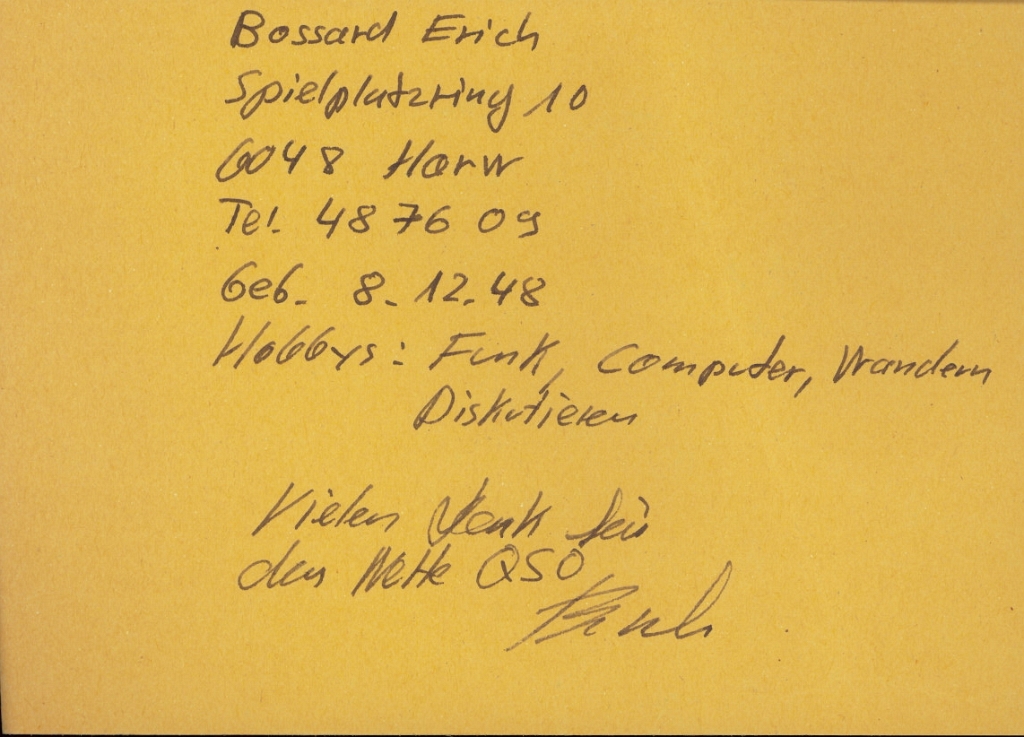 Bossard Erich
Spielplatzring 10
6048 Horw
Tel. 48 76 09
Geb. 8.12.48
Hobbys: Funk, Computer, Wandern
Diskutieren
Vielen Dank für
das Nette QSO
Erich